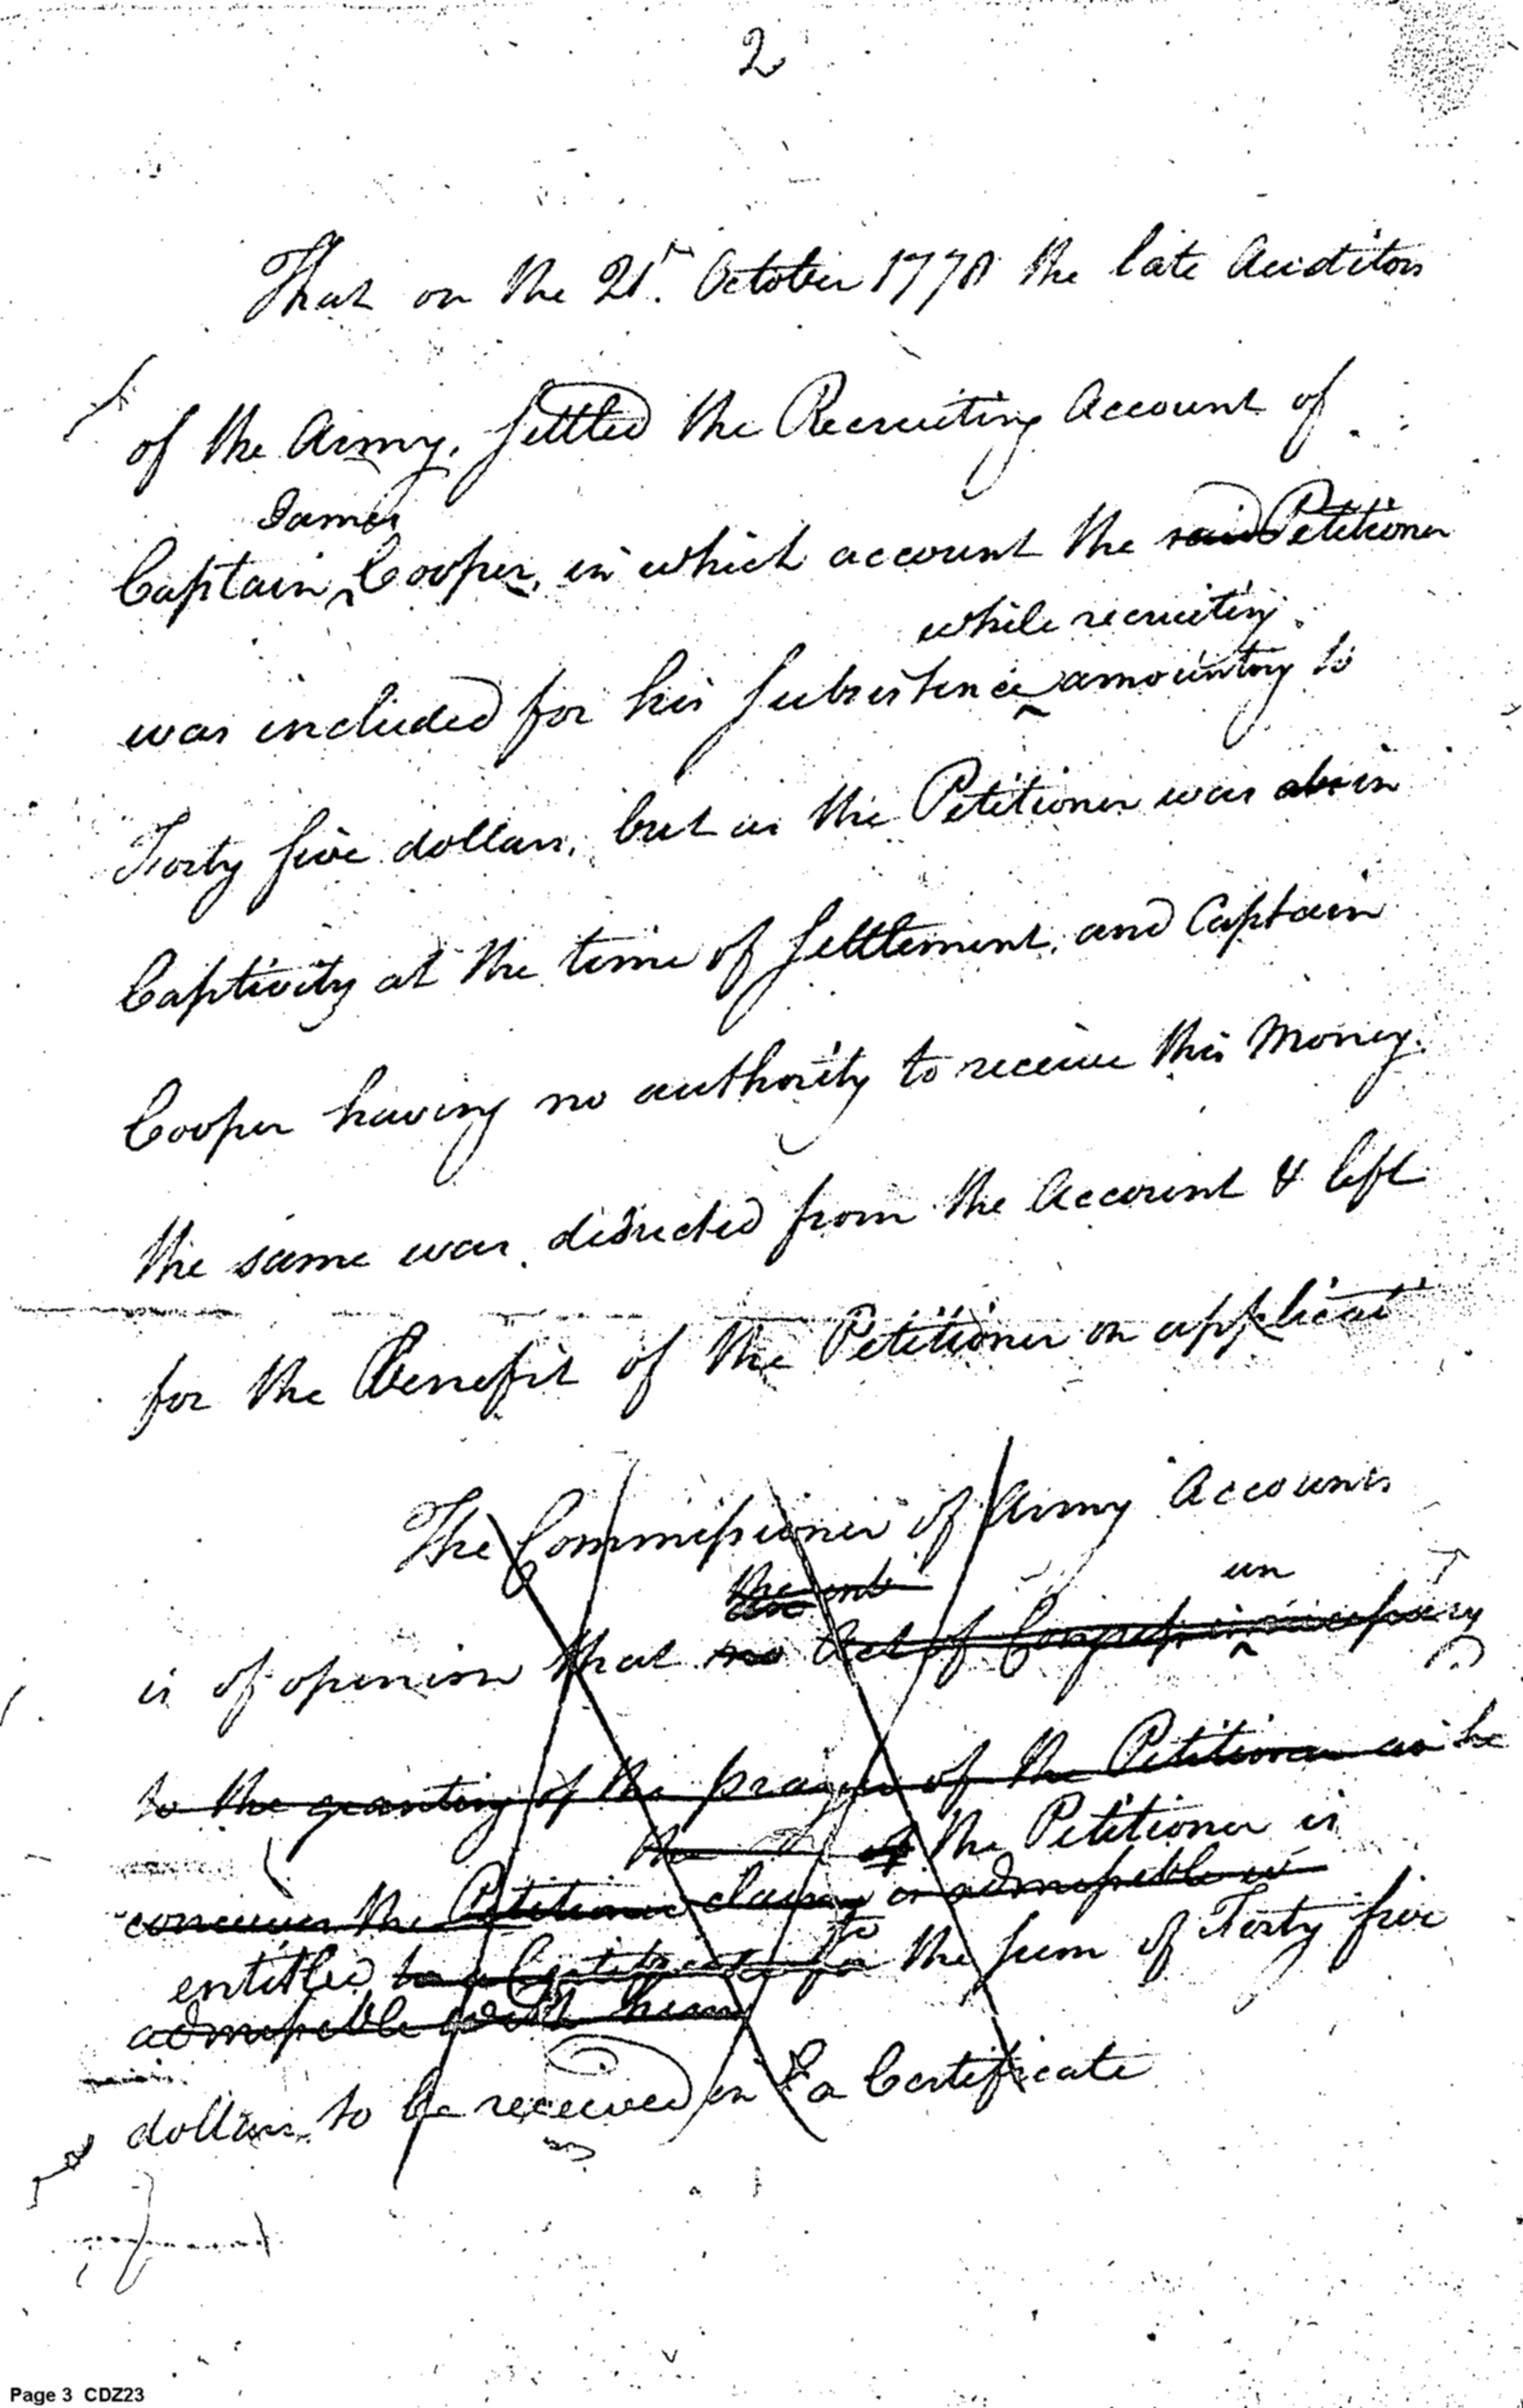 2
That on the 21st. October 1778 the late Auditors
of the Army, settled the Recruiting Account of
James
Captain Cooper, in which account the said Petitioner
while recruiting
was included for his Subsistence amounting to
Forty five dollars, but as the Petitioner was in
Captivity at the time of Settlement, and Captain
Cooper having no authority to receive this Money.
the same was deducted from the Account & left
for the Benefit of the Petitioner on applicat
The Commissioner of Army Accounts
un
is of opinion that no Act of Congress is necessary
to the granting of the prayer of the Petitioner as he
the of the Petitioner is
conceives the Petitioners claim is admissible
to
entitled to a Certificate for the sum of Forty five
admissible with him
dollars, to be received in a Certificate
Page 3 CDZ23